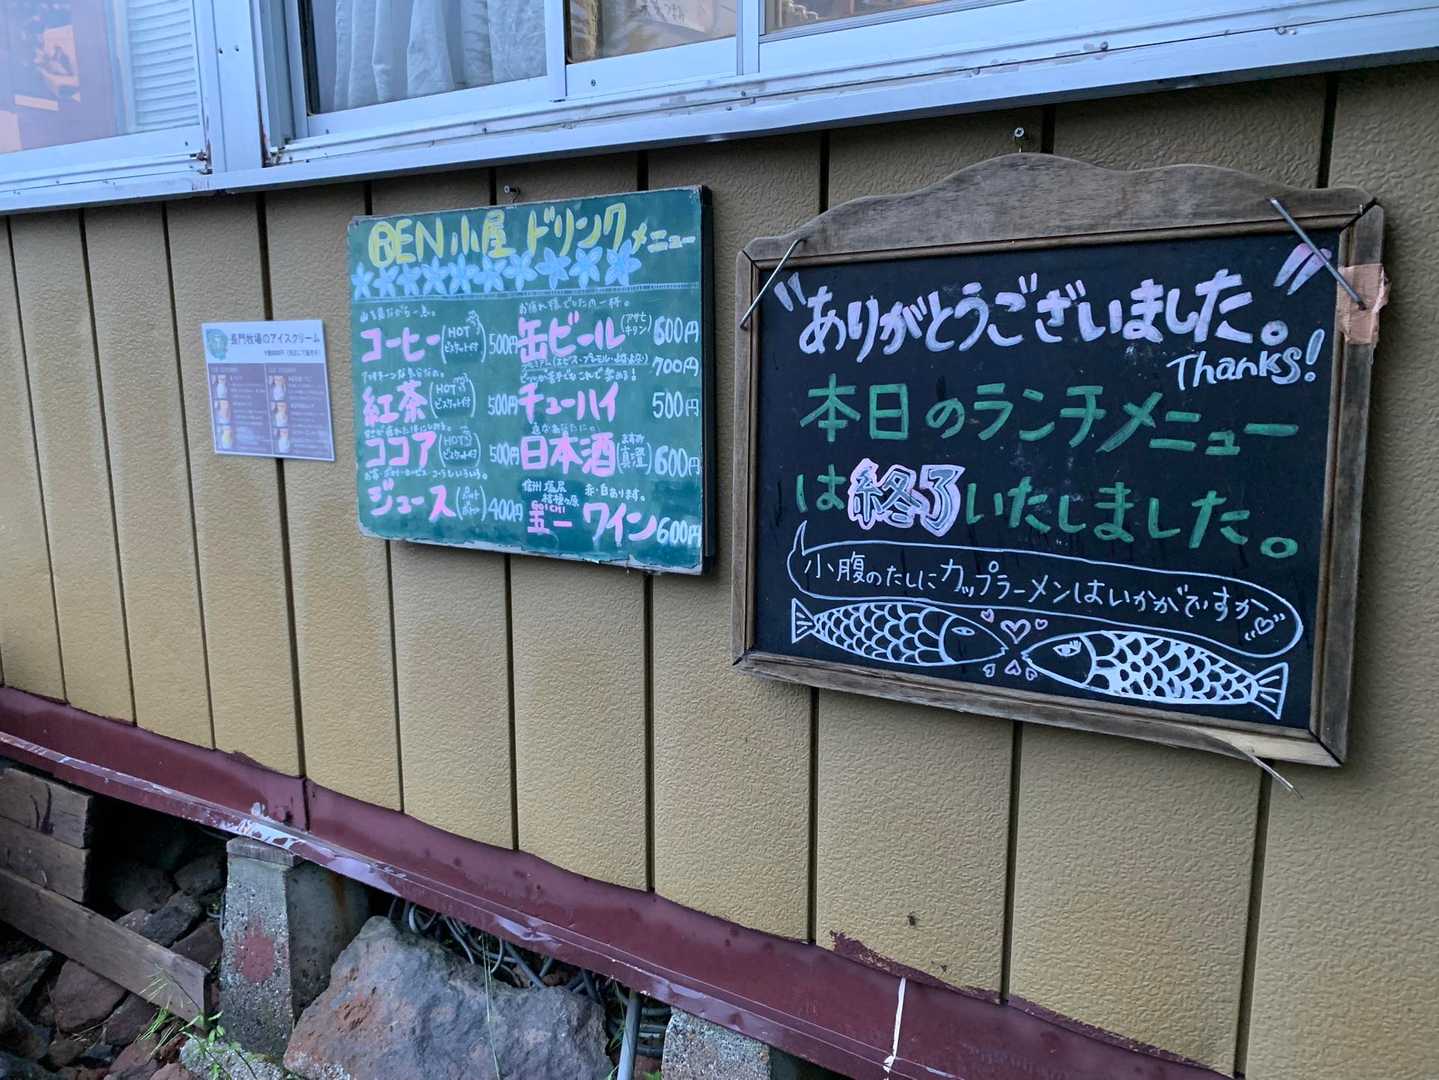 長門牧場のアイスクリーム
REN小屋 ドリンクメニュー
コーヒー (HOT ビスケット付) 500円
紅茶 (HOT ビスケット付) 500円
ココア (HOT ビスケット付) 500円
ジュース 400円
お疲れ様でしたの一杯。
缶ビール (アサヒ キリン) 600円
700円
チューハイ 500円
日本酒 (ますみ 真澄) 600円
信州塩尻 桔梗ヶ原 赤・白あります。
GOICHI
五一ワイン 600円
"ありがとうございました。"
Thanks!
本日のランチメニュー
は終了いたしました。
小腹のたしにカップラーメンはいかがですか♡